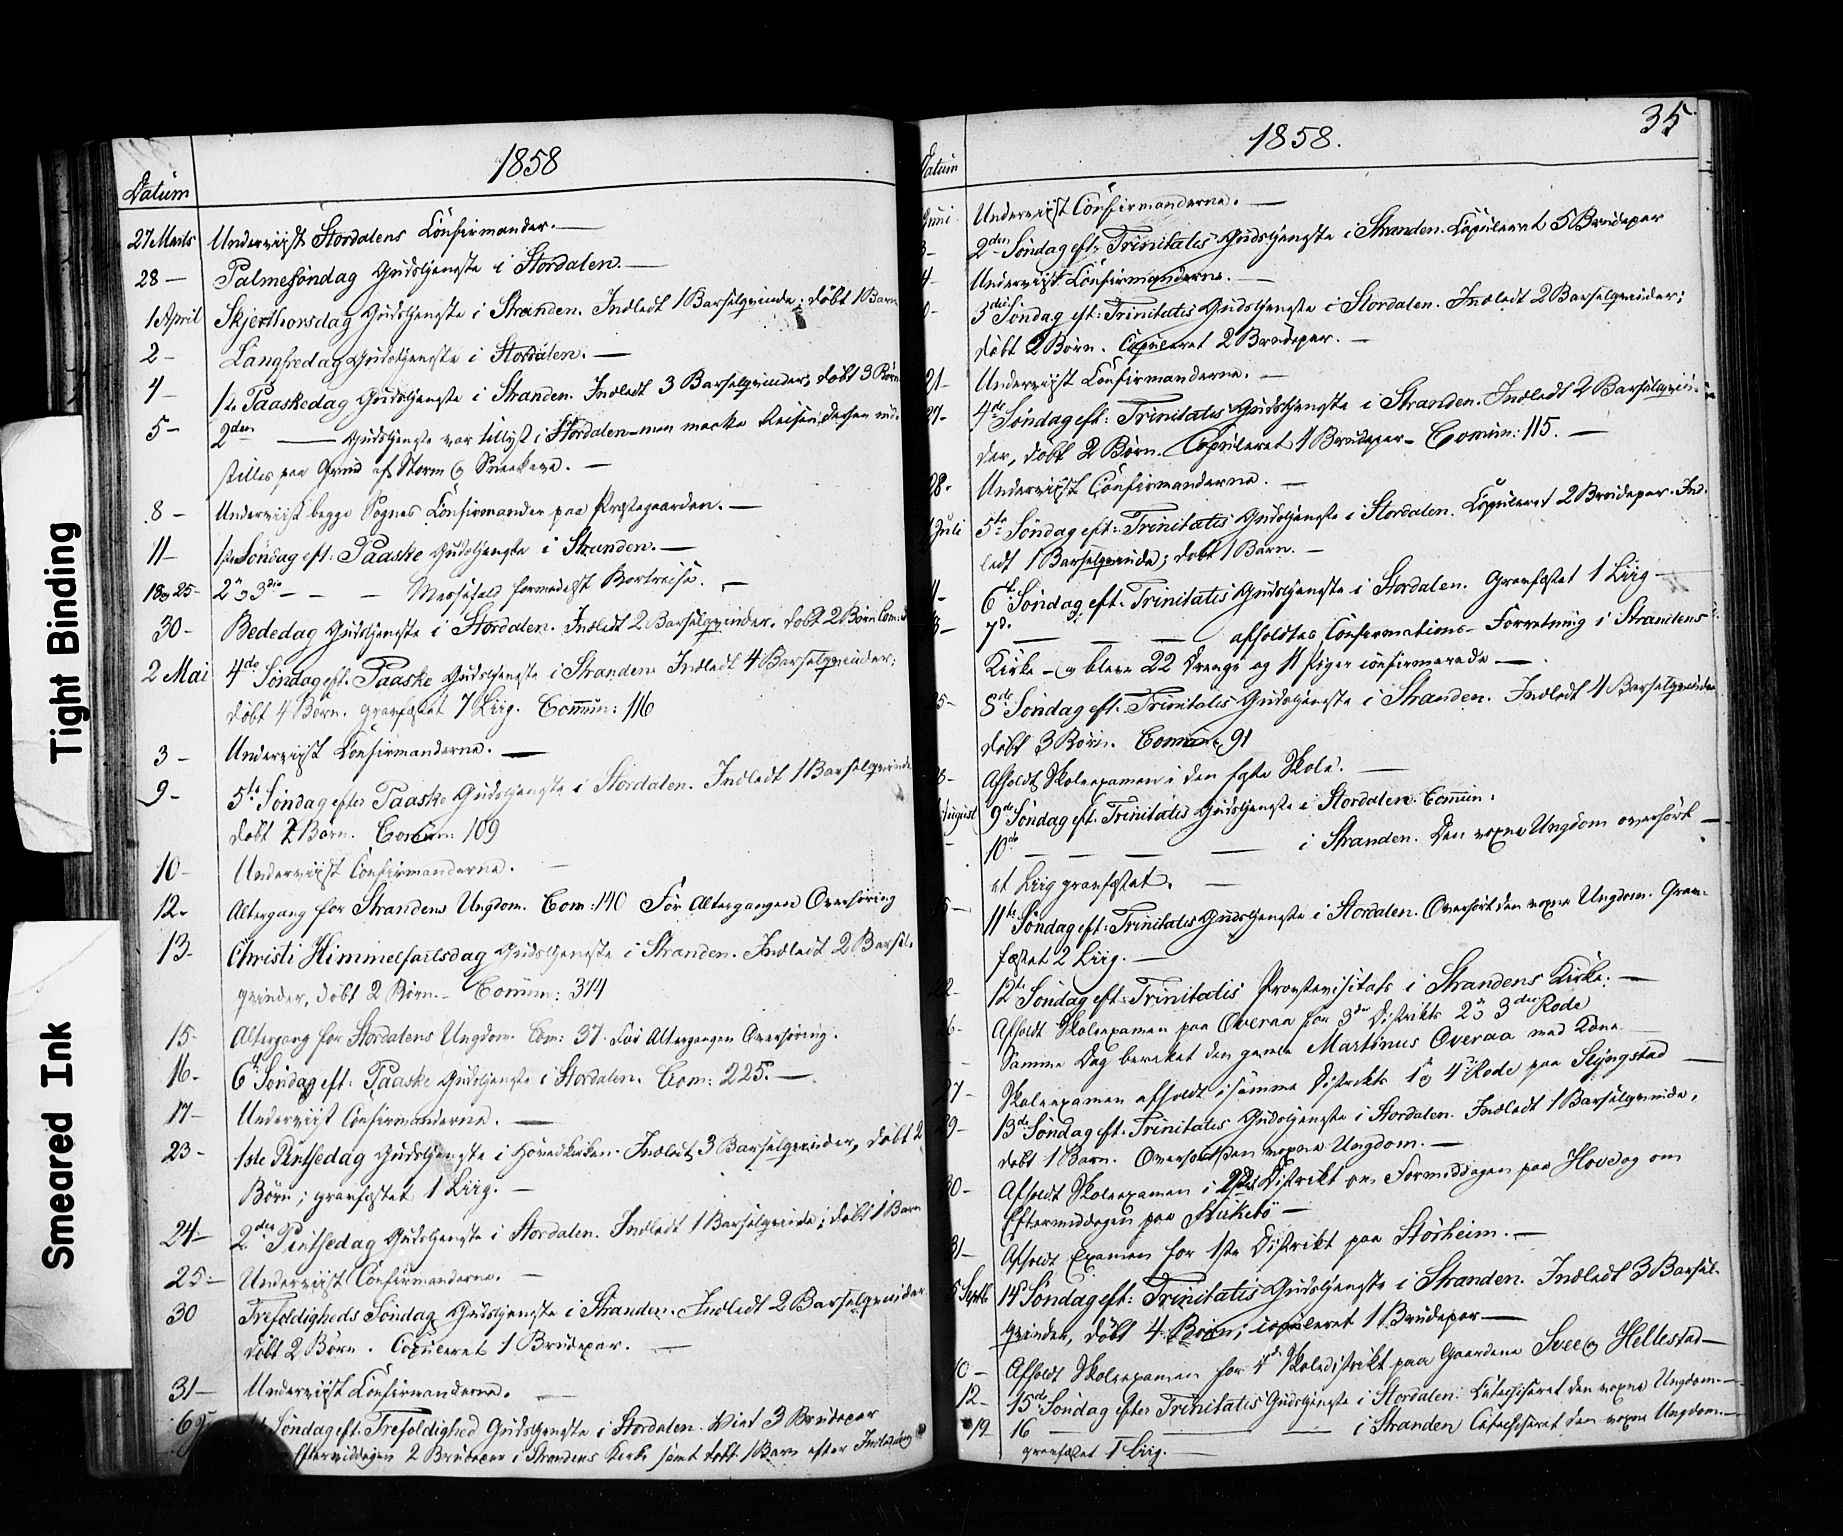 Tight Binding
Smeared Ink
1858
Datum
27 Marts Underviist Stordalens Confirmander. —
28 — Palmesøndag Gudstjeneste i Stordalen. —
1 April Skjerthorsdag Gudstjeneste i Stranden. Indledt 1 Barselqvinde; døbt 1 Barn
2 — Langfredag Gudstjeneste i Stordalen. —
4 — 1ste Paaskedag Gudstjeneste i Stranden. Indledt 3 Barselqvinder, døbt 3 Børn
5 — 2den — Gudstjeneste var tillyst i Stordalen — men maatte Reisen dersen ind-
stilles paa Grund af Storm og Sneekave. —
8 — Underviist begge Sognes Confirmander paa Præstegaarden. —
11 — 1ste Søndag eft: Paaske Gudstjeneste i Stranden. —
18 og 25 — 2den og 3die — — — Messefald formedelst Bortreise. —
30 — Bededag Gudstjeneste i Stordalen. Indledt 2 Barselqvinder. døbt 2 Børn
2 Mai 4de Søndag eft: Paaske Gudstjeneste i Stranden Indledt 4 Barselqvinder;
døbt 4 Børn. gravfæstet 7 Liig. Commun: 116
3 — Underviist Confirmanderne. —
9 — 5te Søndag efter Paaske Gudstjeneste i Stordalen. Indledt 1 Barselqvinde
døbt 2 Børn. Commun: 109
10 — Underviist Confirmanderne. —
12 — Altergang for Strandens Ungdom. Com: 140 Før Altergangen Overhøring
13 — Christi Himmelfartsdag Gudstjeneste i Stranden. Indledt 2 Barsel-
qvinder, døbt 2 Børn. — Commun: 374
15 — Altergang for Stordalens Ungdom Com: 37. Før Altergangen Overhøring.
16 — 6te Søndag eft: Paaske Gudstjeneste i Stordalen. Com: 225. —
17 — Underviist Confirmanderne. —
23 — 1ste Pintsedag Gudstjeneste i Hovedkirken. Indledt 3 Barselqvinder, døbt 2
Børn; gravfæstet 1 Liig. —
24 — 2den Pintsedag Gudstjeneste i Stordalen. Indledt 1 Barselqvinde; døbt 1 Barn
25 — Underviist Confirmanderne. —
30 Trefoldigheds Søndag Gudstjeneste i Stranden. Indledt 2 Barselqvinder
døbt 2 Børn. Copuleret 1 Brudepar. —
31 — Underviist Confirmanderne. —
6 Søndag eft: Trefoldighed Gudstjeneste i Stordalen. Viet 3 Brudepar
Eftermiddagen 2 Brudepar i Strandens Kirke samt døbt 1 Barn efter Indledning
35
1858.
Datum
Juni Underviist Confirmanderne. —
2den Søndag eft: Trinitatis Gudstjeneste i Stranden. Copuleret 5 Brudepar
4 Underviist Confirmanderne. —
3die Søndag eft: Trinitatis Gudstjeneste i Stordalen. Indledt 2 Barselqvinder;
døbt 2 Børn. Copuleret 2 Brudepar. —
21 — Underviist Confirmanderne. —
27 — 4de Søndag eft: Trinitatis Gudstjeneste i Stranden. Indledt 2 Barselqvin-
der, døbt 2 Børn. Copuleret 4 Brudepar — Commun: 115. —
28. Underviist Confirmanderne. —
Juli 5te Søndag eft: Trinitatis Gudstjeneste i Stordalen. Copuleret 2 Brudepar. Ind-
ledt 1 Barselqvinde; døbt 1 Barn. —
6te Søndag eft: Trinitatis Gudstjeneste i Stordalen. Gravfæstet 1 Liig —
7de — — — afholdtes Confirmations-Forretning i Strandens
Kirke — og bleve 22 Drenge og 11 Piger confirmerede —.
8de Søndag eft: Trinitatis Gudstjeneste i Stranden. Indledt 4 Barselqvinder
døbt 3 Børn. Commun: 91
Afholdt Skoleexamen i den faste Skole. —
August 9de Søndag eft: Trinitatis Gudstjeneste i Stordalen. Commun:
10de — — — — i Stranden. Den voxne Ungdom overhørt —
et Liig gravfæstet. —
11te Søndag eft: Trinitatis Gudstjeneste i Stordalen. Overhørt den voxne Ungdom. Grav-
fæstet 2 Liig. —
22 — 12te Søndag eft: Trinitatis Provstevisitats i Strandens Kirke. —
26 — Afholdt Skoleexamen paa Overaa for 3die Distrikts 2den og 3die Rode
Samme Dag berettet den gamle Martinus Overaa med Kone
27 — Skoleexamen afholdt i samme Distrikts 1ste og 4de Rode paa Slyngstad —
29 — 13de Søndag eft: Trinitatis Gudstjeneste i Stordalen. Indledt 1 Barselqvinde,
døbt 1 Barn. Overhørt den voxne Ungdom. —
30 — Afholdt Skoleexamen i 2det Distrikt om Formiddagen paa Hove og om
Eftermiddagen paa —
31 — Afholdt Examen for 1ste Distrikt paa Storheim. —
5 Septb 14de Søndag eft: Trinitatis Gudstjeneste i Stranden. Indledt 3 Barsel-
qvinder, døbt 4 Børn; copuleret 1 Brudepar —
10 — Afholdt Skoleexamen for 4de Skoledistrikt paa Gaardene Svee og Hellestad —
12 — 15de Søndag efter Trinitatis Gudstjeneste i Stordalen. Catechiseret den voxne Ungdom —
19 16 — — — i Stranden Catechiseret den voxne Ungdom —
gravfæstet 1 Liig. —